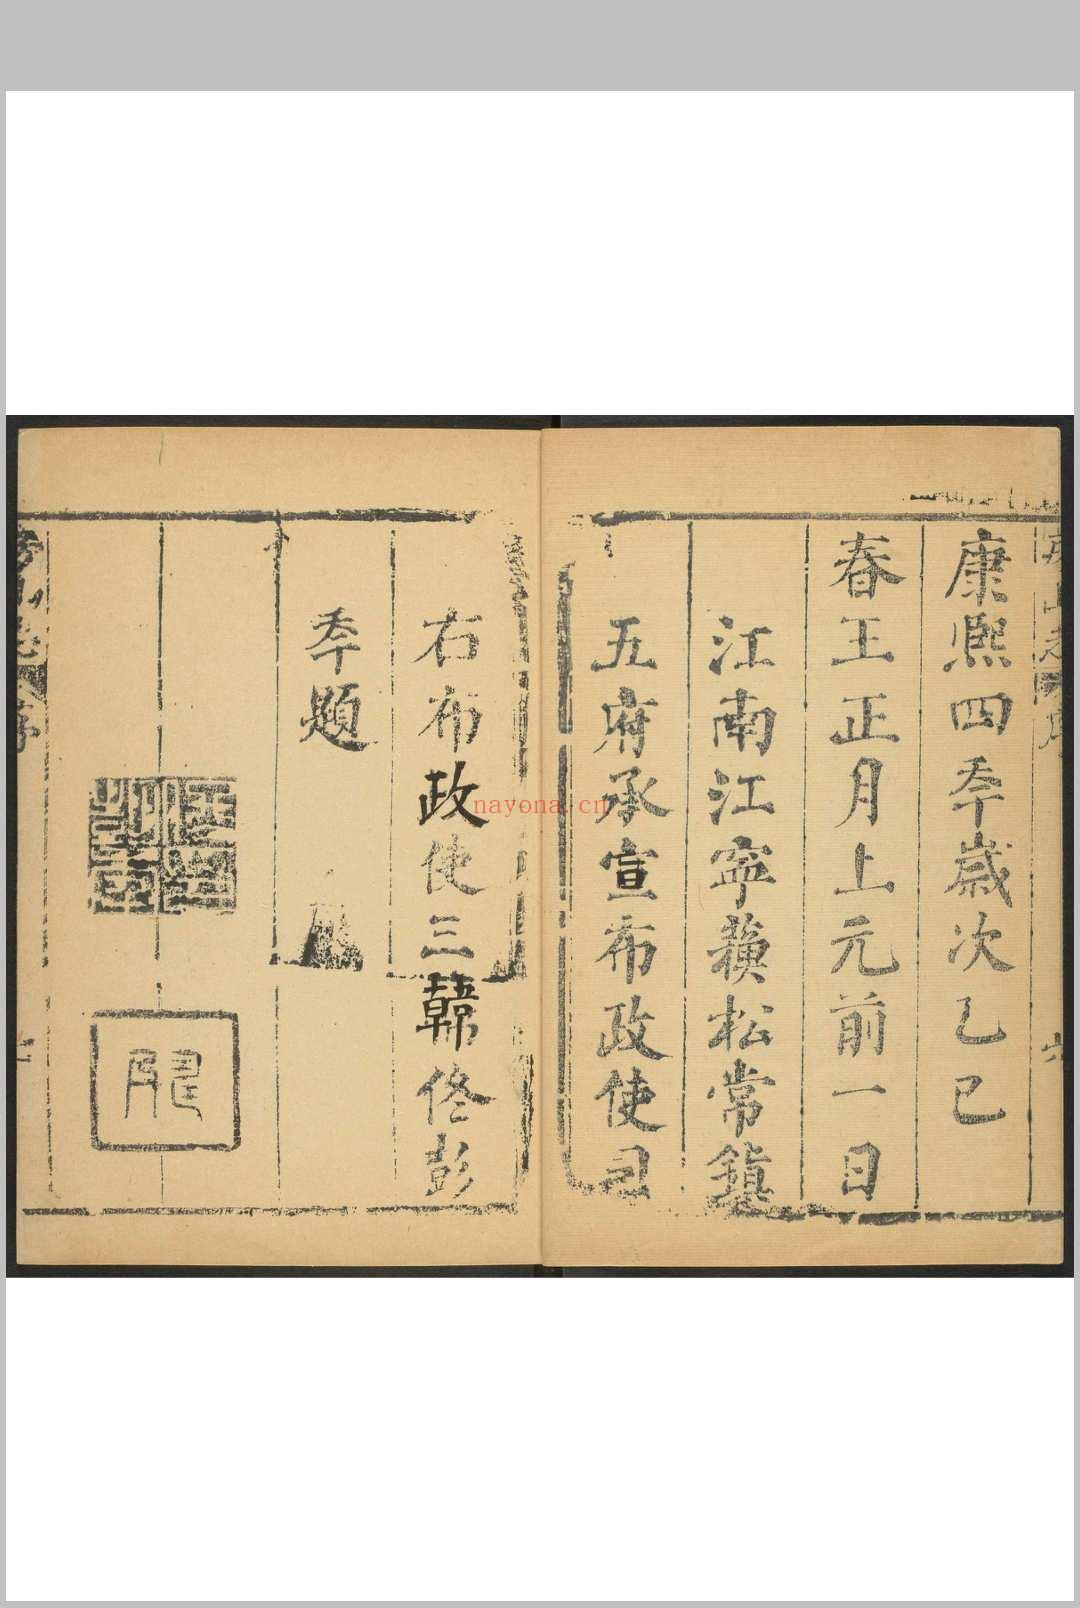 康熈四秊嵗次乙巳
春王正月上元前一日
江南江寧蘓松常鎮
五府承宣布政使司
右布政使三韓佟彭
秊題
nayona.cn